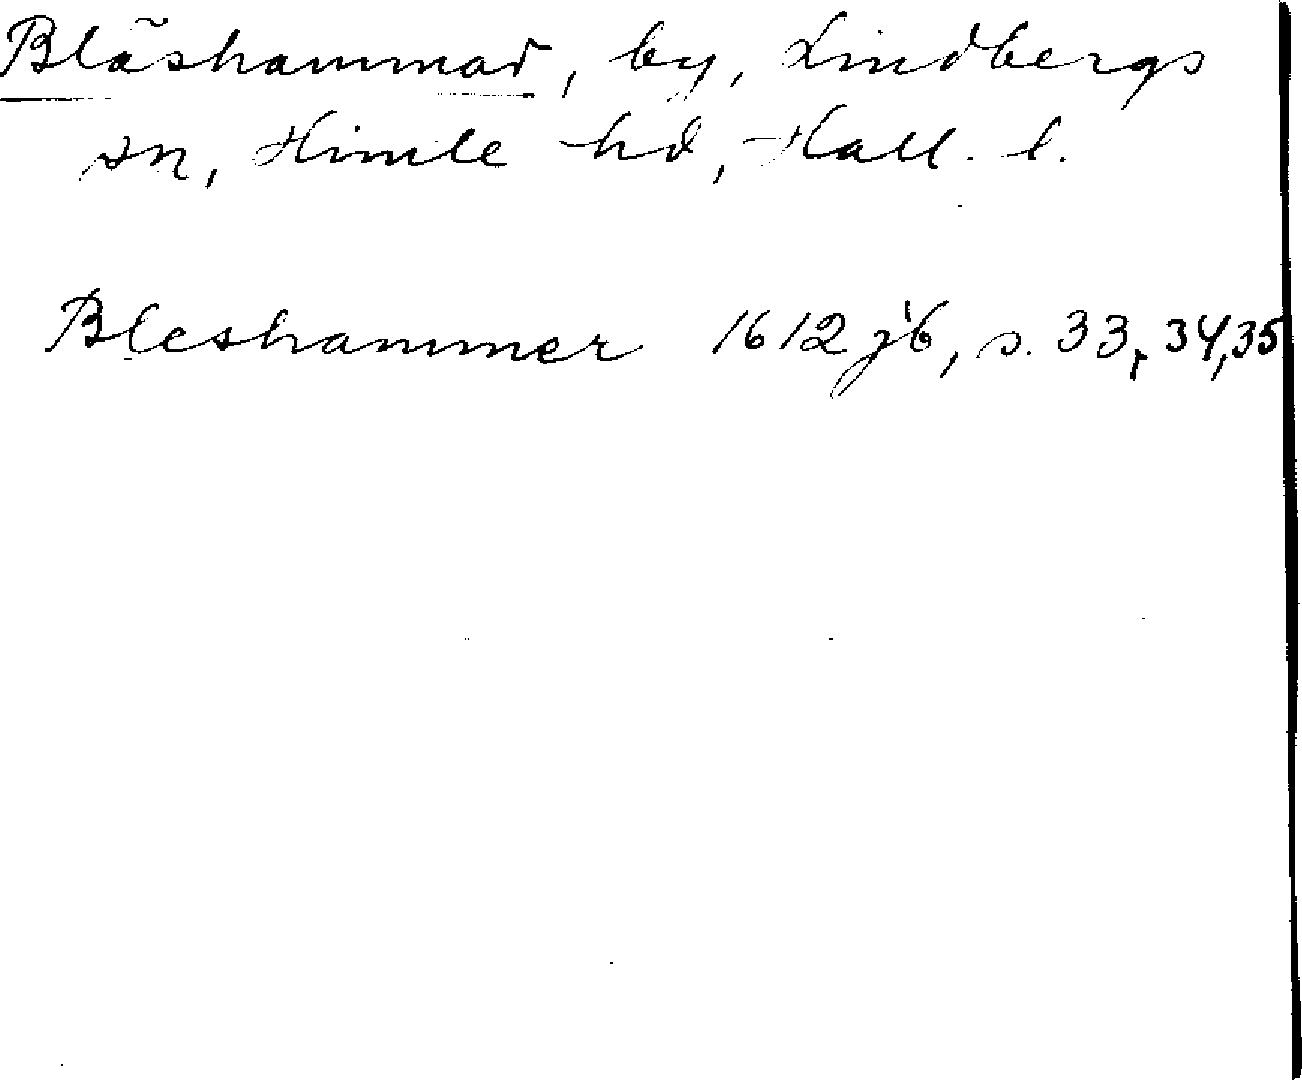 Bläshammar, by, Lindbergs
sn, Himle hd, Hall. l.
Bleshammer 1612 jb, s. 33, 34, 35